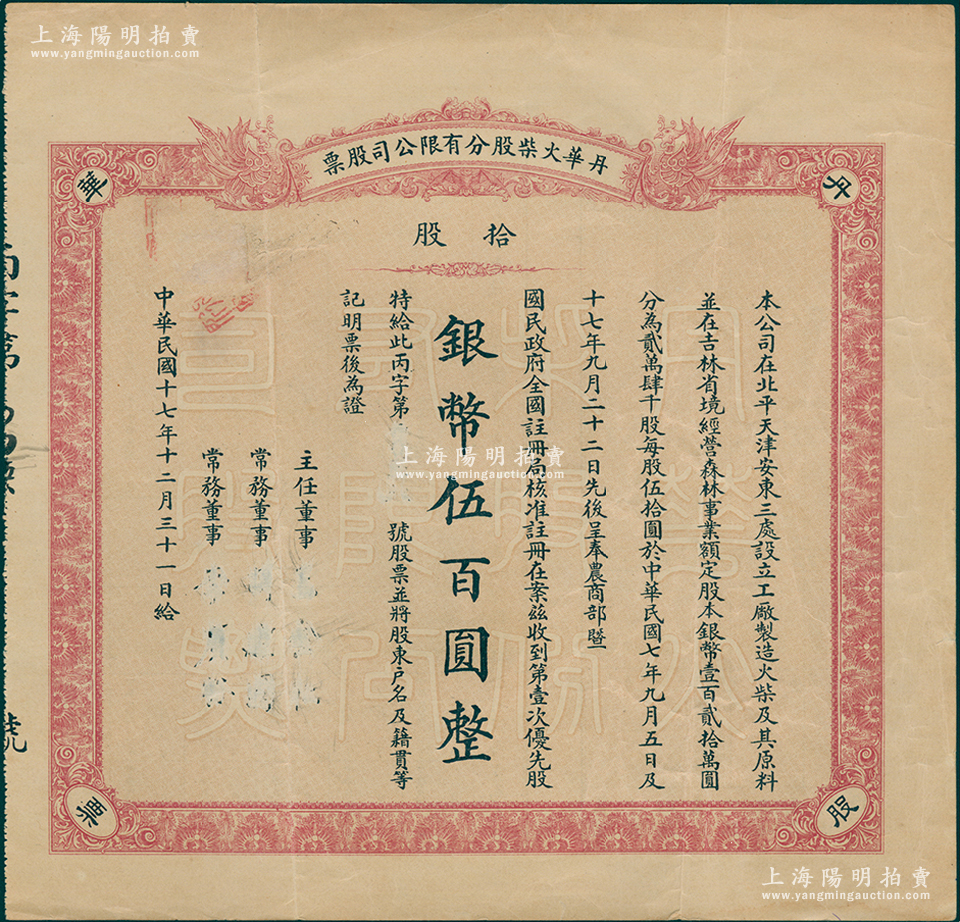 上海陽明拍賣
www.yangmingauction.com
上海陽明拍賣
www.yangmingauction.com
丹華火柴股分有限公司股票
丹
華
拾股
本公司在北平天津安東三處設立工廠製造火柴及其原料
並在吉林省境經營森林事業額定股本銀幣壹百貳拾萬圓
分為貳萬肆千股每股伍拾圓於中華民國七年九月五日及
十七年九月二十二日先後呈奉農商部暨
國民政府全國註冊局核准註冊在案茲收到第壹次優先股
銀幣伍百圓整
特給此丙字第
號股票並將股東戶名及籍貫等
記明票後為證
主任董事
常務董事
常務董事
中華民國十七年十二月三十一日給
上海陽明拍賣
www.yangmingauction.com
股
票
號
上海陽明拍賣
www.yangmingauction.com